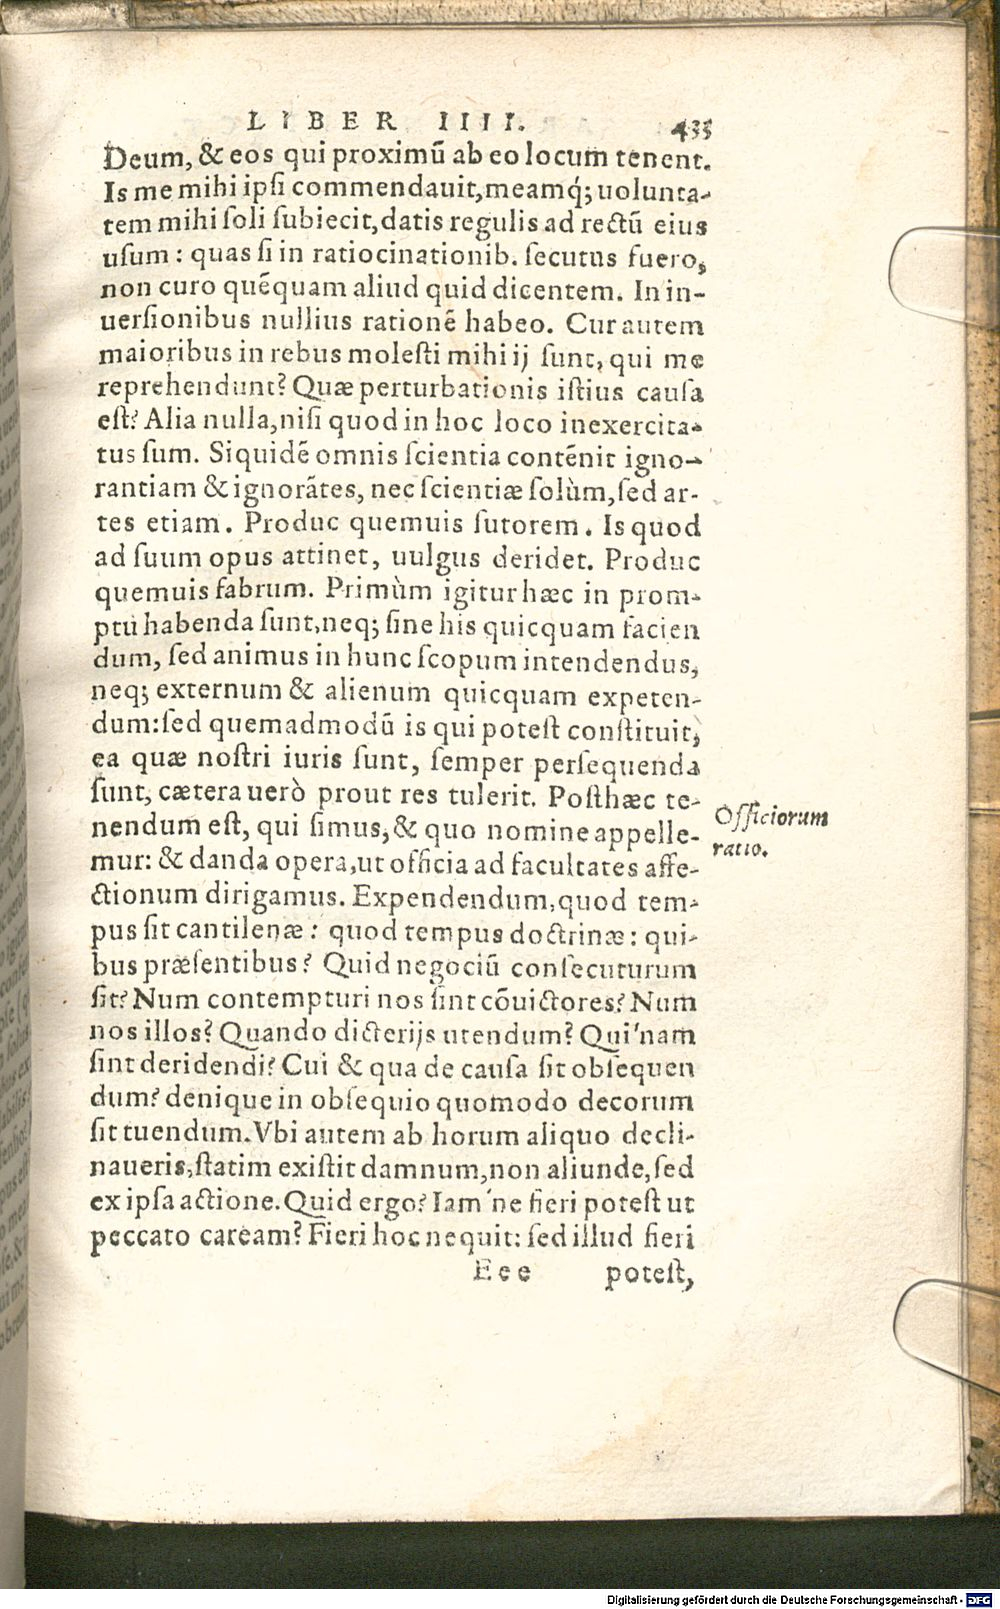 LIBER IIII. 435
Deum, & eos qui proximũ ab eo locum tenent.
Is me mihi ipſi commendauit, meamq́; uolunta-
tem mihi ſoli ſubiecit, datis regulis ad rectũ eius
uſum: quas ſi in ratiocinationib. ſecutus fuero,
non curo quẽquam aliud quid dicentem. In in-
uerſionibus nullius rationẽ habeo. Cur autem
maioribus in rebus moleſti mihi ij ſunt, qui me
reprehendunt? Quæ perturbationis iſtius cauſa
eſt? Alia nulla, niſi quod in hoc loco inexercita-
tus ſum. Siquidẽ omnis ſcientia contẽnit igno-
rantiam & ignorãtes, nec ſcientiæ ſolùm, ſed ar-
tes etiam. Produc quemuis ſutorem. Is quod
ad ſuum opus attinet, uulgus deridet. Produc
quemuis fabrum. Primùm igitur hæc in prom-
ptu habenda ſunt, neq; ſine his quicquam facien
dum, ſed animus in hunc ſcopum intendendus,
neq; externum & alienum quicquam expeten-
dum: ſed quemadmodũ is qui poteſt conſtituit,
ea quæ noſtri iuris ſunt, ſemper perſequenda
ſunt, cætera uerò prout res tulerit. Poſthæc te-
nendum eſt, qui ſimus, & quo nomine appelle-
mur: & danda opera, ut officia ad facultates affe-
ctionum dirigamus. Expendendum, quod tem-
pus ſit cantilenæ: quod tempus doctrinæ: qui-
bus præſentibus? Quid negociũ conſecuturum
ſit? Num contempturi nos ſint cõuictores? Num
nos illos? Quando dicterijs utendum? Qui'nam
ſint deridendi? Cui & qua de cauſa ſit obſequen
dum? denique in obſequio quomodo decorum
ſit tuendum. Vbi autem ab horum aliquo decli-
naueris, ſtatim exiſtit damnum, non aliunde, ſed
ex ipſa actione. Quid ergo? Iam'ne fieri poteſt ut
peccato caream? Fieri hoc nequit: ſed illud fieri
Eee poteſt,
Officiorum
ratio.
Digitalisierung gefördert durch die Deutsche Forschungsgemeinschaft - DFG